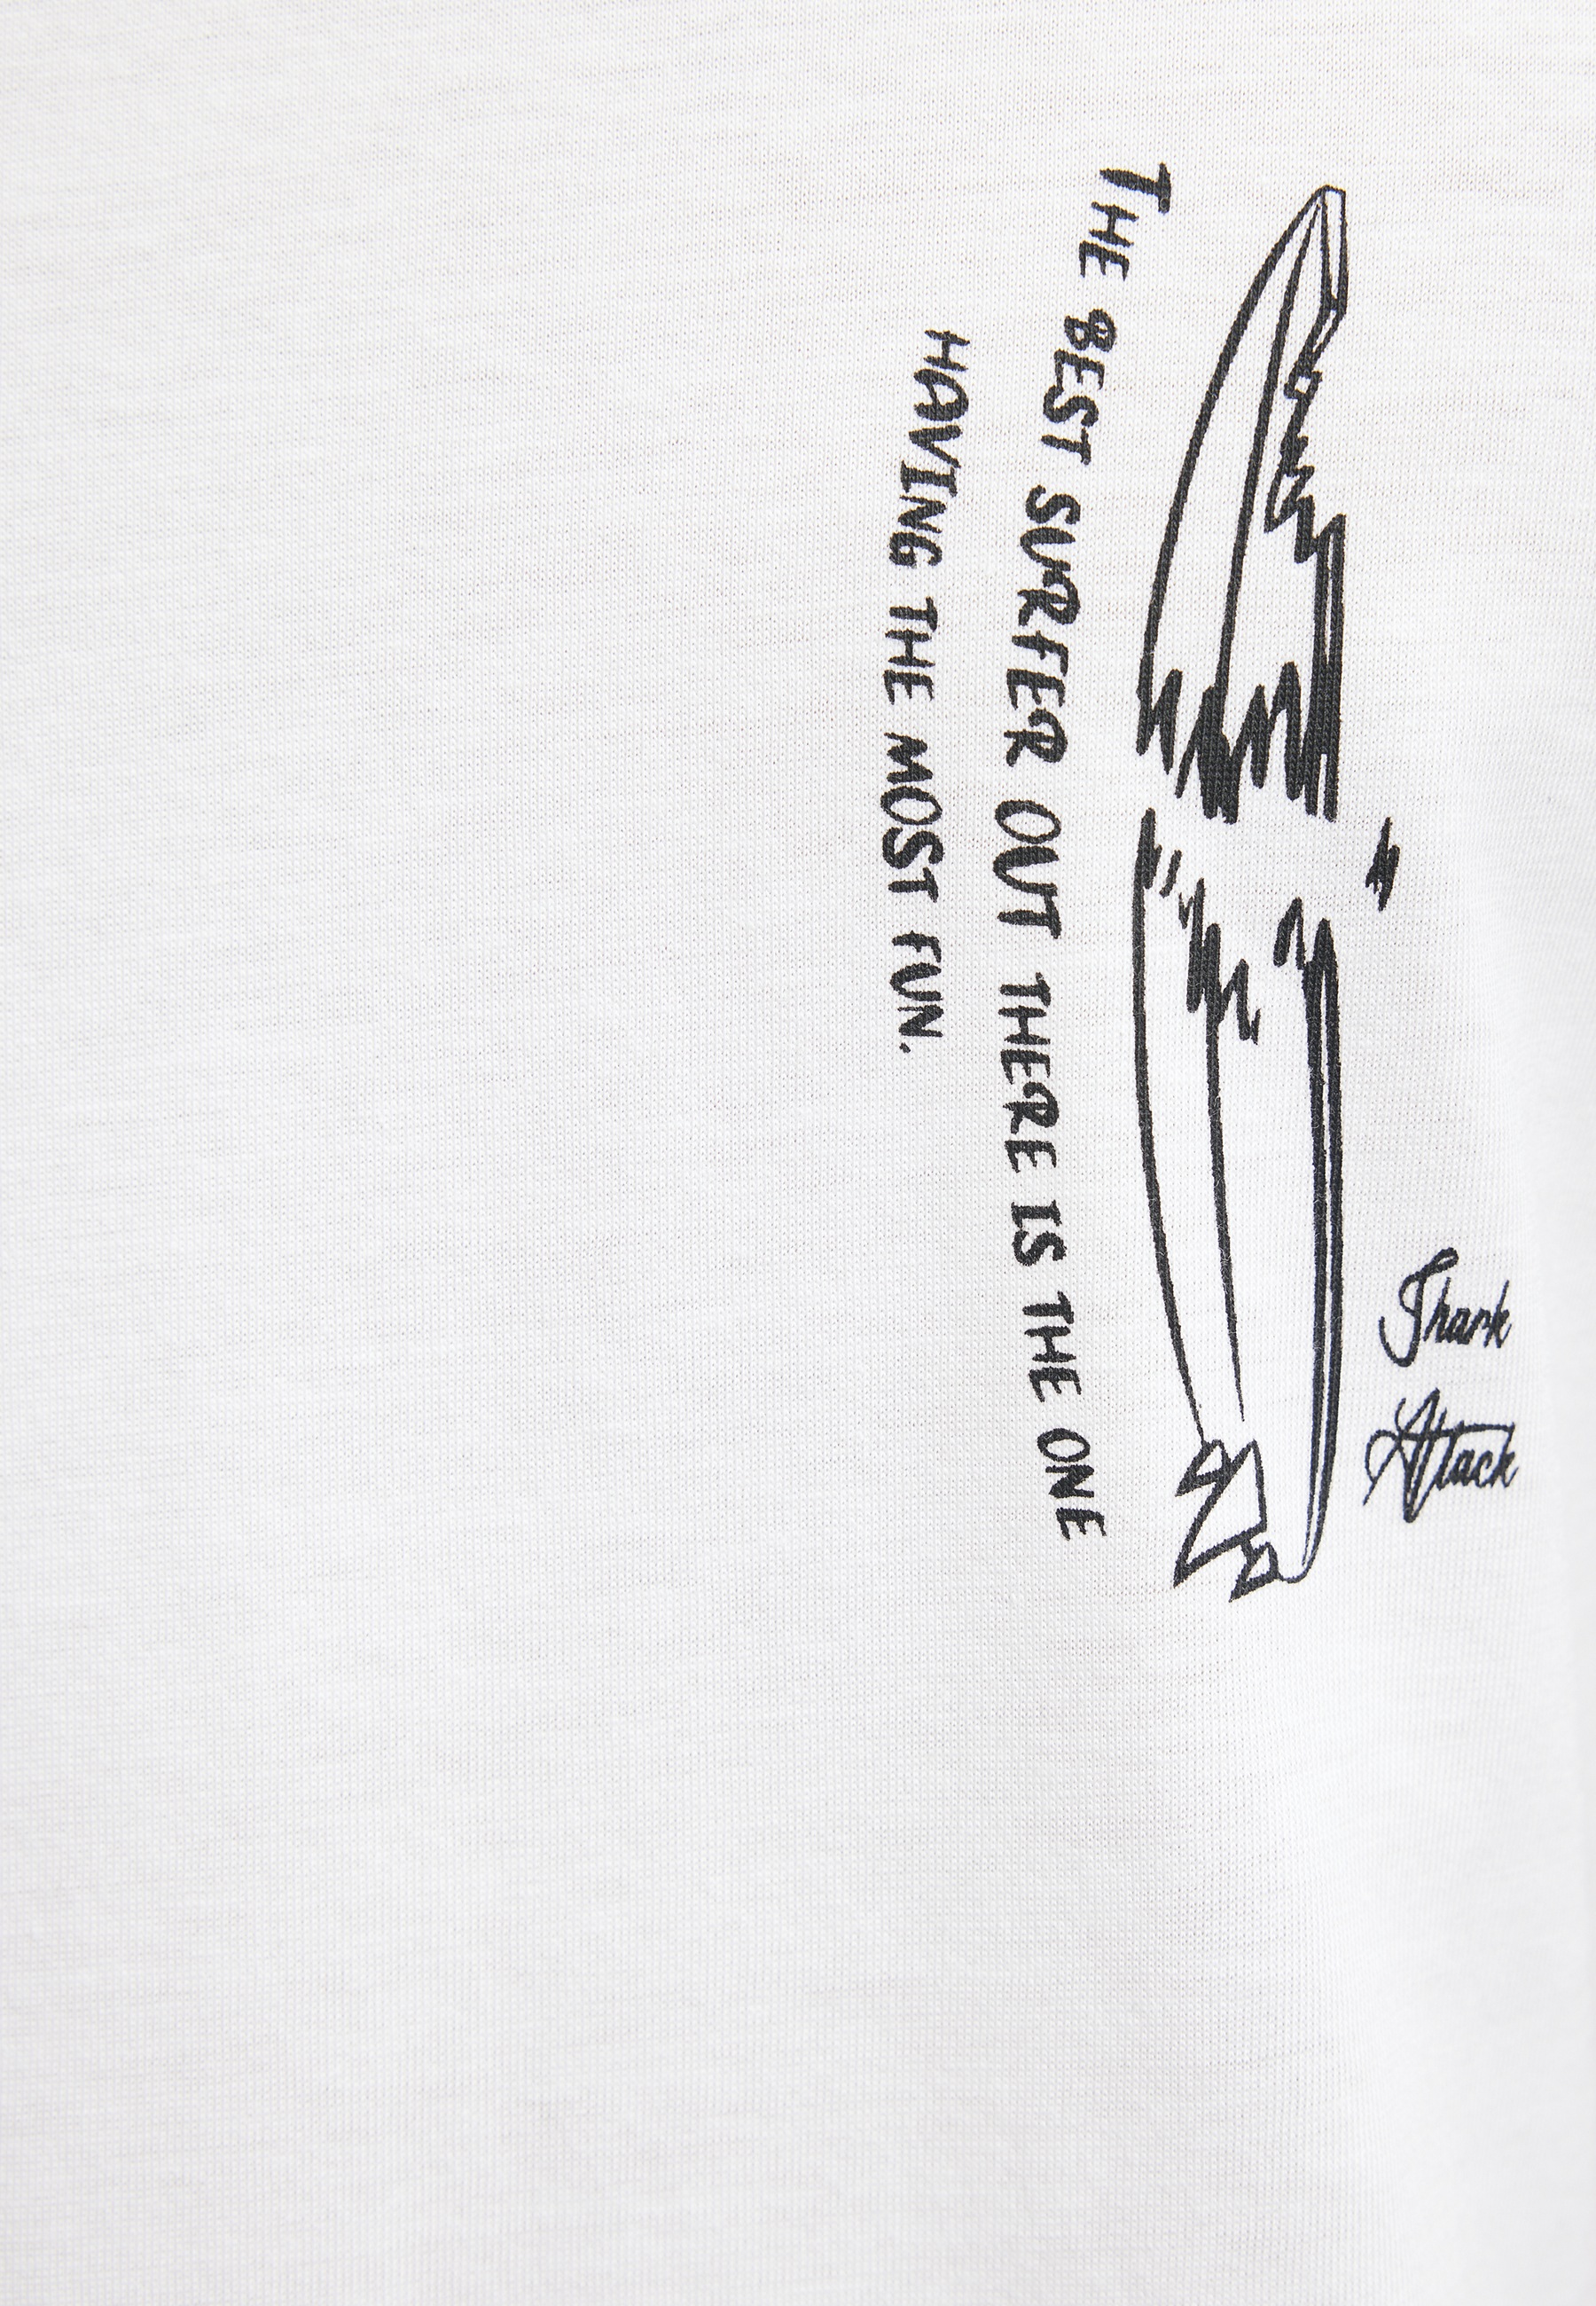 Shark
Attack
THE BEST SURFER OUT THERE IS THE ONE
HAVING THE MOST FUN.